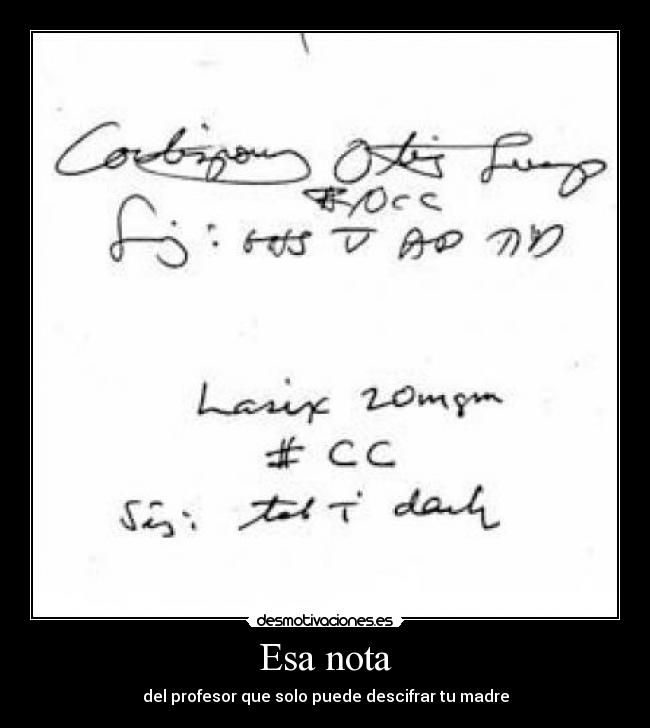 Cortisporin Otic Susp
# 10cc
Sig: AD
Lasix 20mgm
# CC
Sig: tab i daily
desmotivaciones.es
Esa nota
del profesor que solo puede descifrar tu madre